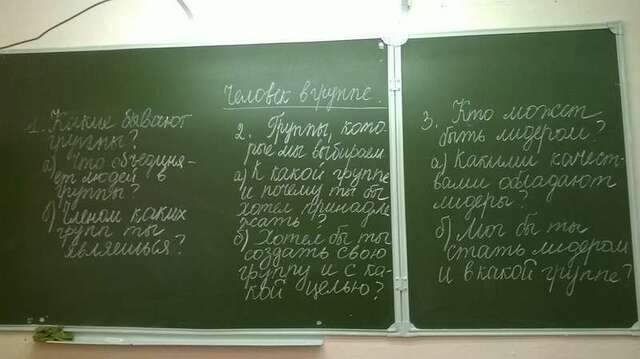 Человек в группе.
1. Какие бывают
группы?
а) Что объединя-
ет людей в
группы?
б) Членом каких
групп ты
являешься?
2. Группы, кото-
рые мы выбираем
а) К какой группе
и почему ты бы
хотел принадле
жать?
б) Хотел бы ты
создать свою
группу и с ка-
кой целью?
3. Кто может
быть лидером?
а) Какими качест-
вами обладают
лидеры?
б) Мог бы ты
стать лидером
и в какой группе?